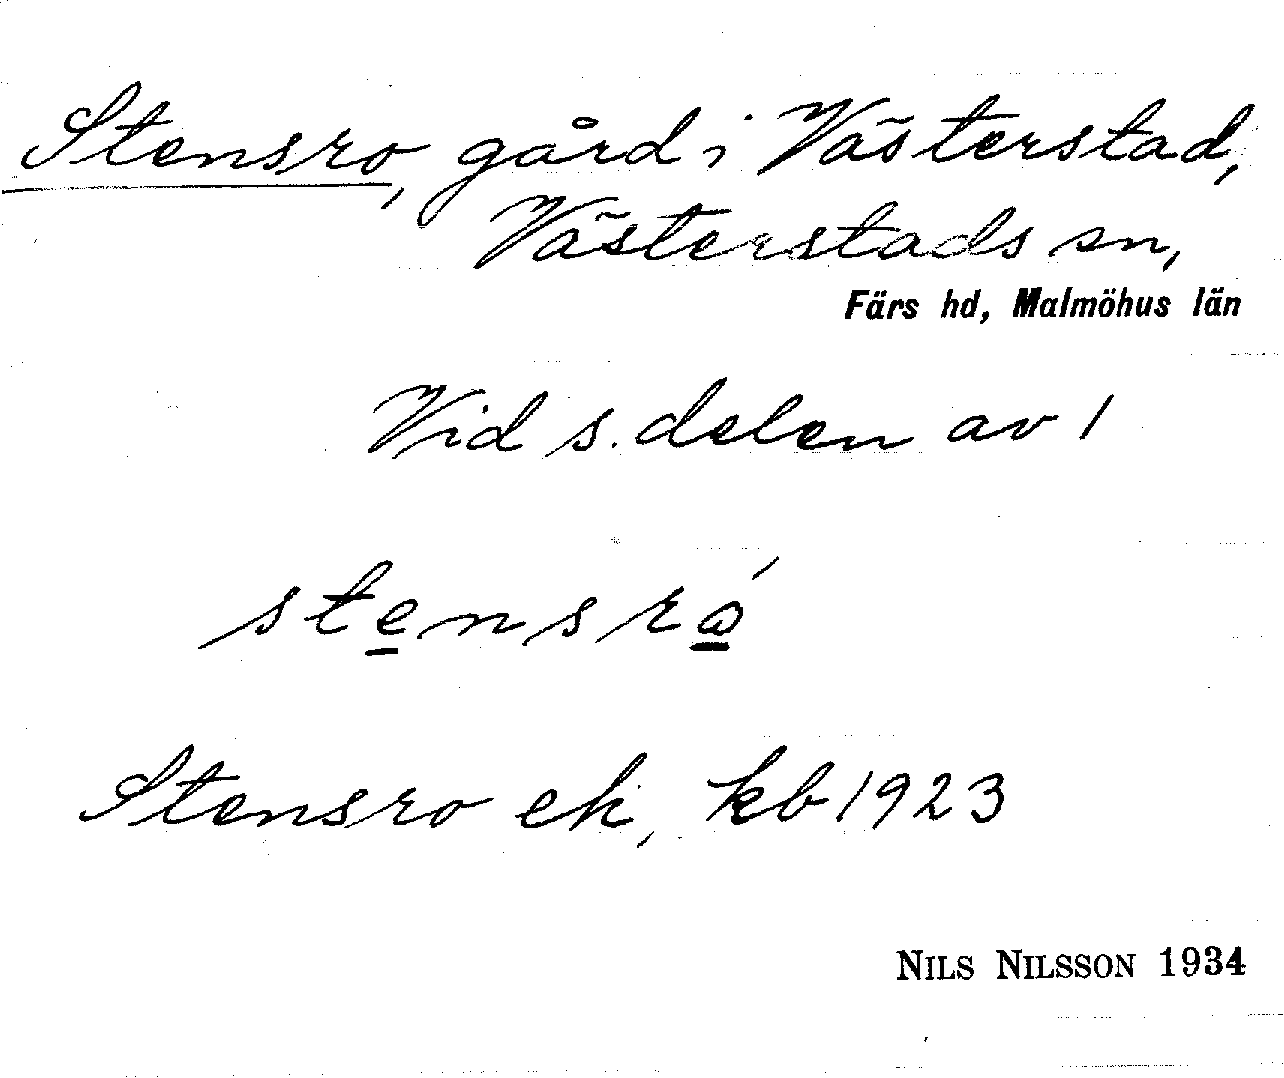 Stensro, gård i Västerstad,
Västerstads sn,
Färs hd, Malmöhus län
Vid s. delen av 1
stensrώ
Stensro ek, kb 1923
NILS NILSSON 1934